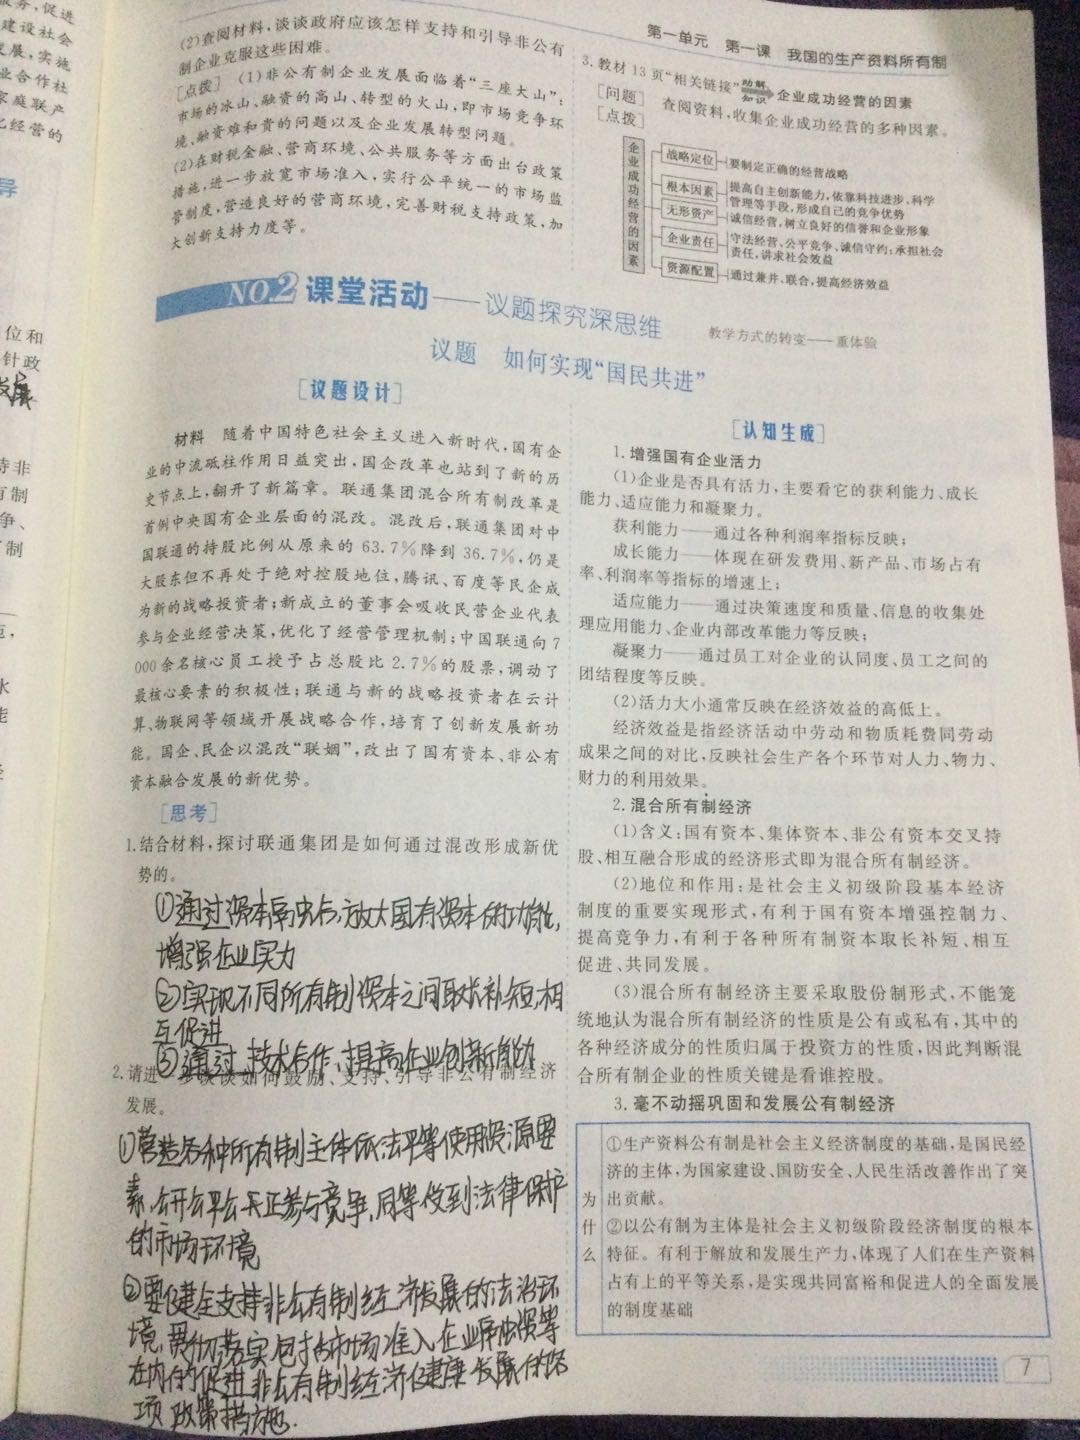 第一单元 第一课 我国的生产资料所有制
(2)查阅材料,谈谈政府应该怎样支持和引导非公有
制企业克服这些困难。
[点拨] (1)非公有制企业发展面临着“三座大山”:
市场的冰山、融资的高山、转型的火山,即市场竞争环
境、融资难和贵的问题以及企业发展转型问题。
(2)在财税金融、营商环境、公共服务等方面出台政策
措施,进一步放宽市场准入,实行公平统一的市场监
管制度,营造良好的营商环境,完善财税支持政策,加
大创新支持力度等。
3.教材13页“相关链接” 助解知识 企业成功经营的因素
[问题] 查阅资料,收集企业成功经营的多种因素。
[点拨]
企业成功经营的因素
战略定位 要制定正确的经营战略
根本因素 提高自主创新能力,依靠科技进步、科学
管理等手段,形成自己的竞争优势
无形资产 诚信经营,树立良好的信誉和企业形象
企业责任 守法经营、公平竞争、诚信守约;承担社会
责任,讲求社会效益
资源配置 通过兼并、联合,提高经济效益
NO.2 课堂活动——议题探究深思维
教学方式的转变——重体验
议题 如何实现“国民共进”
[议题设计]
材料 随着中国特色社会主义进入新时代,国有企
业的中流砥柱作用日益突出,国企改革也站到了新的历
史节点上,翻开了新篇章。联通集团混合所有制改革是
首例中央国有企业层面的混改。混改后,联通集团对中
国联通的持股比例从原来的63.7%降到36.7%,仍是
大股东但不再处于绝对控股地位,腾讯、百度等民企成
为新的战略投资者;新成立的董事会吸收民营企业代表
参与企业经营决策,优化了经营管理机制;中国联通向7
000余名核心员工授予占总股比2.7%的股票,调动了
最核心要素的积极性;联通与新的战略投资者在云计
算、物联网等领域开展战略合作,培育了创新发展新功
能。国企、民企以混改“联姻”,改出了国有资本、非公有
资本融合发展的新优势。
[思考]
1.结合材料,探讨联通集团是如何通过混改形成新优
势的。
①通过资本合作,放大国有资本的功能,
增强企业实力
②实现不同所有制资本之间取长补短,相
互促进
③通过技术合作,提高企业创新能力
2.请进一步谈谈如何鼓励、支持、引导非公有制经济
发展。
①营造各种所有制主体依法平等使用资源要
素、公开公平公正参与竞争、同等受到法律保护
的市场环境
②要健全支持非公有制经济发展的法治环
境,贯彻落实包括市场准入、企业融资等
在内的促进非公有制经济健康发展的各
项政策措施.
[认知生成]
1.增强国有企业活力
(1)企业是否具有活力,主要看它的获利能力、成长
能力、适应能力和凝聚力。
获利能力——通过各种利润率指标反映;
成长能力——体现在研发费用、新产品、市场占有
率、利润率等指标的增速上;
适应能力——通过决策速度和质量、信息的收集处
理应用能力、企业内部改革能力等反映;
凝聚力——通过员工对企业的认同度、员工之间的
团结程度等反映。
(2)活力大小通常反映在经济效益的高低上。
经济效益是指经济活动中劳动和物质耗费同劳动
成果之间的对比,反映社会生产各个环节对人力、物力、
财力的利用效果。
2.混合所有制经济
(1)含义:国有资本、集体资本、非公有资本交叉持
股、相互融合形成的经济形式即为混合所有制经济。
(2)地位和作用:是社会主义初级阶段基本经济
制度的重要实现形式,有利于国有资本增强控制力、
提高竞争力,有利于各种所有制资本取长补短、相互
促进、共同发展。
(3)混合所有制经济主要采取股份制形式,不能笼
统地认为混合所有制经济的性质是公有或私有,其中的
各种经济成分的性质归属于投资方的性质,因此判断混
合所有制企业的性质关键是看谁控股。
3.毫不动摇巩固和发展公有制经济
为什么
①生产资料公有制是社会主义经济制度的基础,是国民经
济的主体,为国家建设、国防安全、人民生活改善作出了突
出贡献。
②以公有制为主体是社会主义初级阶段经济制度的根本
特征。有利于解放和发展生产力,体现了人们在生产资料
占有上的平等关系,是实现共同富裕和促进人的全面发展
的制度基础
7